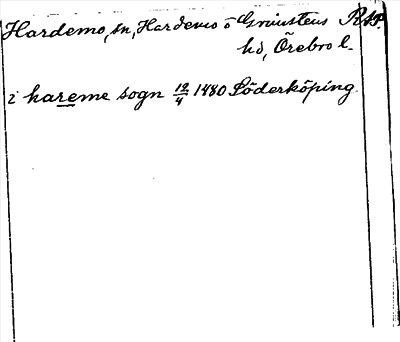 Hardemo, sn, Hardemo o Grimstens RAP.
hd, Örebro l.
i hareme sogn 12/4 1480 Söderköping.